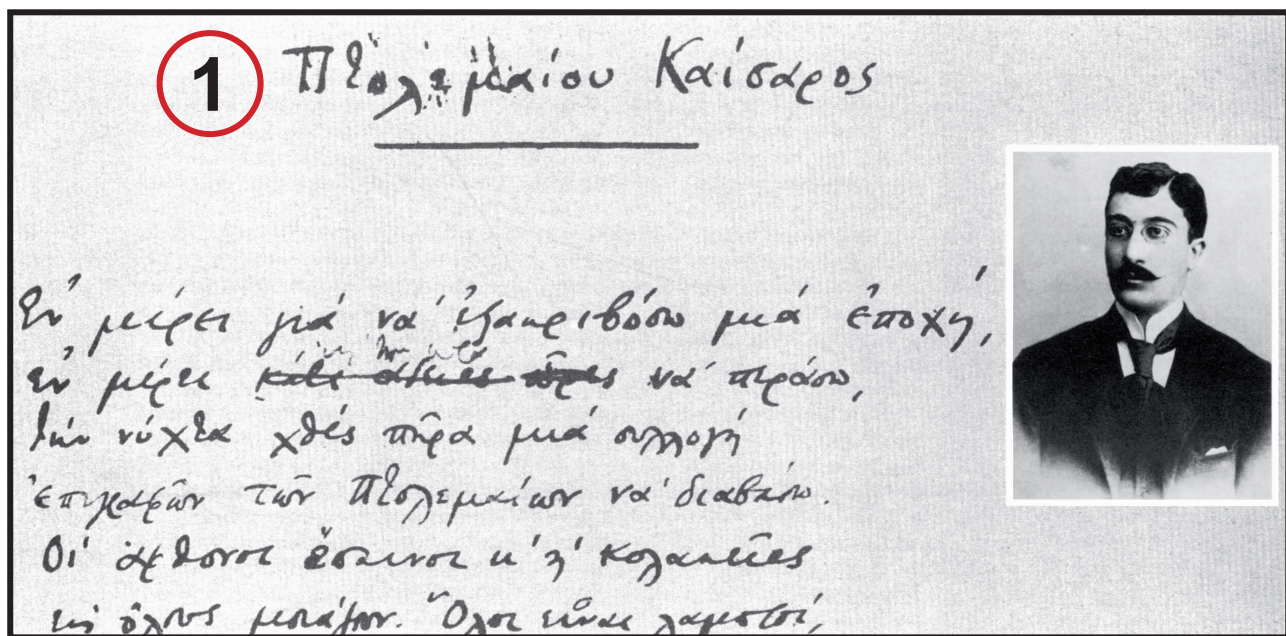 1
Πτολεμαίου Καίσαρος
Ἐν μέρει γιά νά ἐξακριβώσω μιά ἐποχή,
ἐν μέρει καί τήν ὥρα νά περάσω,
τήν νύχτα χθές πῆρα μιά συλλογή
ἐπιγραφῶν τῶν Πτολεμαίων νά διαβάσω.
Οἱ ἄφθονοι ἔπαινοι κ' ἡ κολακεῖες
εἰς ὅλους μοιάζουν. Ὅλοι εἶναι λαμπροί,